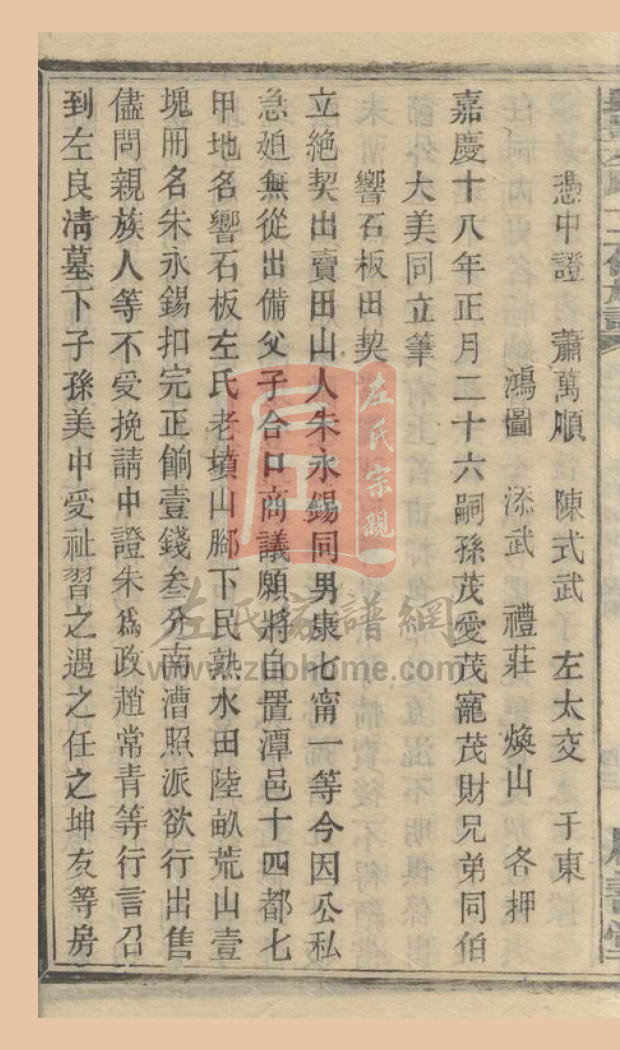 憑中證 蕭萬順 陳式武 左太交 于東
鴻圖 添武 禮莊 煥山 各押
嘉慶十八年正月二十六嗣孫茂愛茂寵茂財兄弟同伯
大美同立筆
響石板田契
立絕契出賣田山人朱永錫同男康七甯一等今因公私
急廹無從出備父子合口商議願將自置潭邑十四都七
甲地名響石板左氏老墳山腳下民熟水田陸畝荒山壹
塊冊名朱永錫扣完正餉壹錢叁分南漕照派欲行出售
儘問親族人等不受挽請中證朱爲政趙常青等行言召
到左良清墓下子孫美中受祉習之遇之任之坤友等房
左氏宗親
左氏家譜網
www.zuohome.com